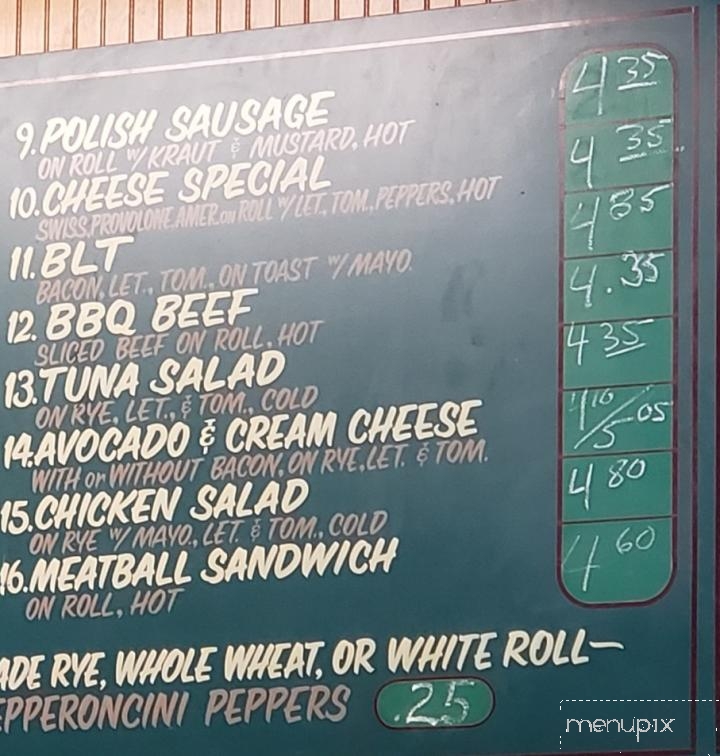 9. POLISH SAUSAGE 4 35
ON ROLL W/KRAUT & MUSTARD, HOT
10. CHEESE SPECIAL 4 35
SWISS, PROVOLONE, AMER. on ROLL W/LET., TOM., PEPPERS, HOT
11. BLT 4 85
BACON, LET., TOM., ON TOAST W/MAYO.
12. BBQ BEEF 4.35
SLICED BEEF ON ROLL, HOT
13. TUNA SALAD 4 35
ON RYE, LET., & TOM., COLD
14. AVOCADO & CREAM CHEESE /5.05
WITH or WITHOUT BACON, ON RYE, LET. & TOM.
15. CHICKEN SALAD 4 80
ON RYE W/MAYO, LET. & TOM., COLD
16. MEATBALL SANDWICH 4 60
ON ROLL, HOT
ADE RYE, WHOLE WHEAT, OR WHITE ROLL—
EPPERONCINI PEPPERS .25
menupix